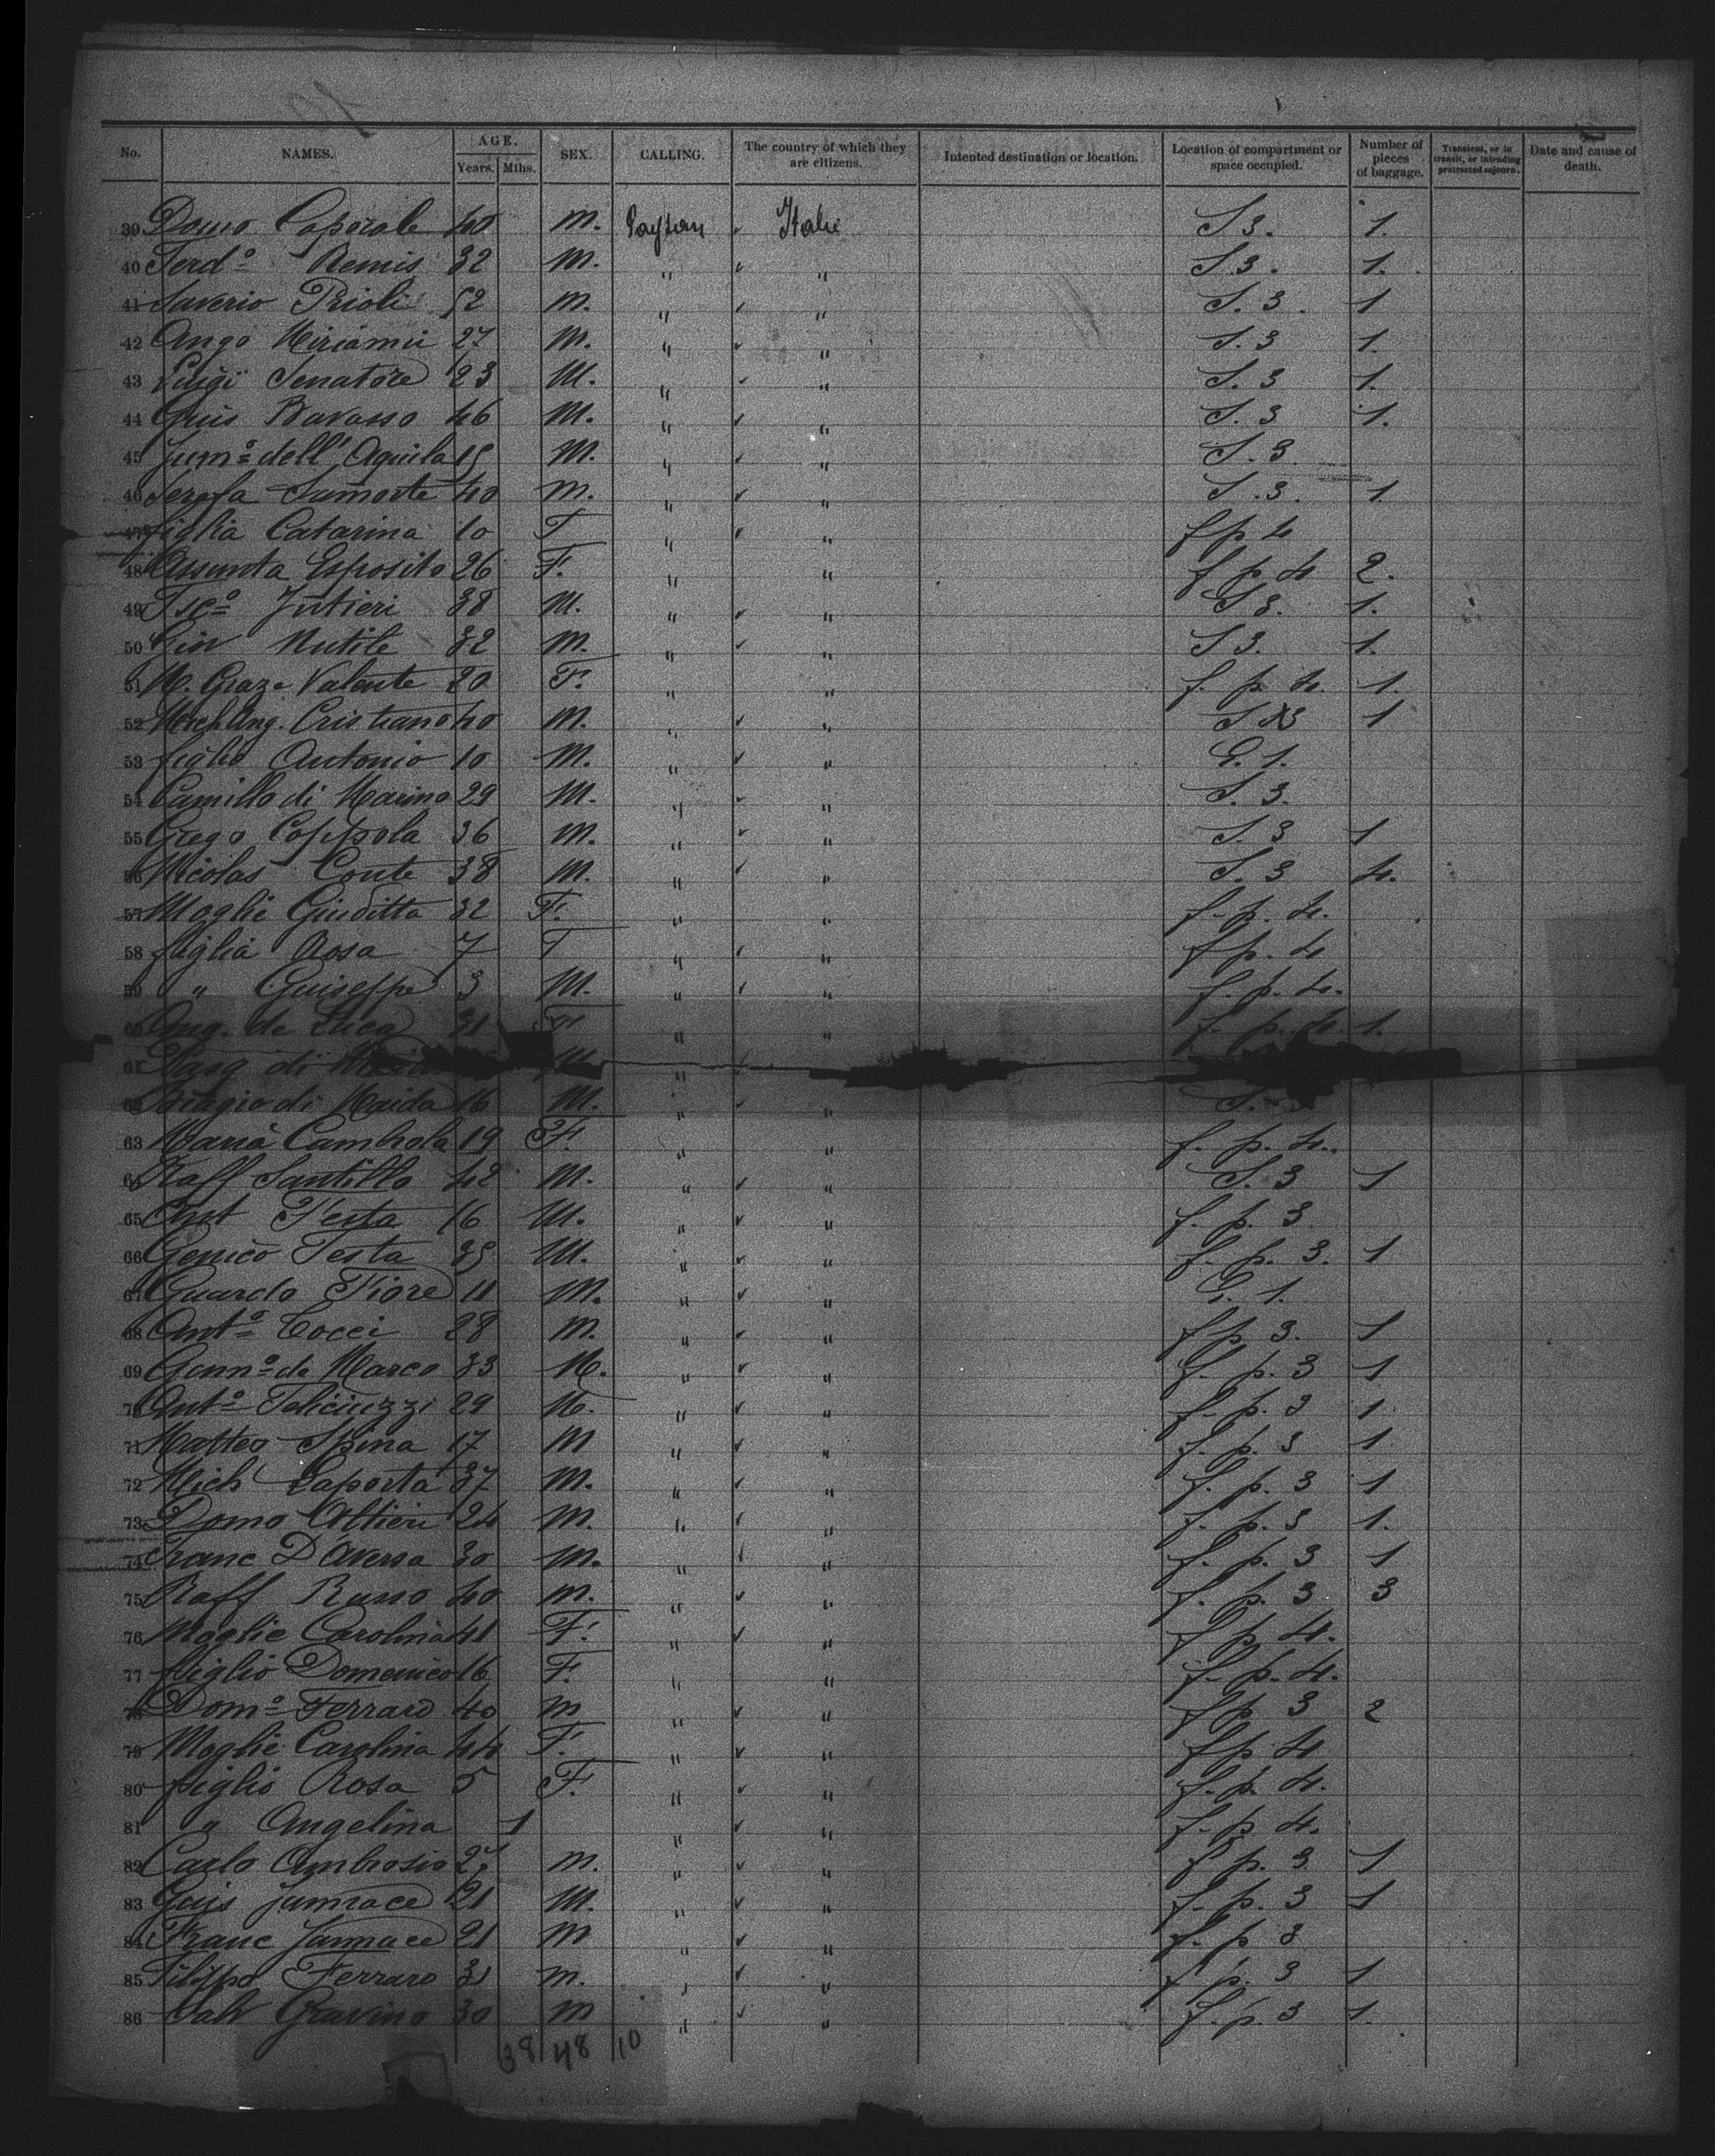 No. NAMES. AGE. Years. Mths. SEX. CALLING. The country of which they are citizens. Intented destination or location. Location of compartment or space occupied. Number of pieces of baggage. Transient, or in transit, or intending protracted sojourn. Date and cause of death.
39 Domo Caporale 40 M. Paysan Italie S 3. 1.
40 Ferd⁰ Remis 32 M. " " S. 3. 1.
41 Saverio Prioli 52 M. " " S. 3. 1
42 Ango 27 M. " " S. 3 1.
43 Luigi Senatore 23 M. " " S. 3 1.
44 Gius Bavasso 46 M. " " S. 3 1.
45 dell'Aquila 15 M. " " S. 3
46 Serafa 40 M. " " S. 3. 1
47 figlia Catarina 10 F " " f p 4
48 Assunta Esposito 26 F. " " f p. 4 2.
49 Fsco 38 M. " " S 3. 1.
50 Giov Nutile 32 M. " " S 3. 1.
51 M. Graz. Valente 20 F. " " f. p. 4. 1.
52 Mich Ang. Cristiano 40 M. " " S 3 1
53 figlio Antonio 10 M. " " G. 1.
54 Camillo di Marino 29 M. " " S. 3.
55 Grego Coppola 36 M. " " S. 3 1
56 Nicolas Conte 38 M. " " S. 3 4.
57 Moglie Giuditta 32 F. " " f. p. 4.
58 figlia Rosa 7 F " " f p. 4
59 " Guiseppe 3 M. " " f. p. 4.
60 Ang. de Luca 31 F " " f. p. 4 1.
61 Pasq di " "
62 Biagio di Maida 16 M. " " S.
63 Maria 19 F. " " f. p. 4.
64 Raff Santillo 42 M. " " S. 3 1
65 Ant Testa 16 M. " " f. p. 3
66 Testa 35 M. " " f. p. 3. 1
67 Fiore 11 M. " " G. 1.
68 Ant⁰ Cocci 28 M. " " f p 3. 1
69 Genn⁰ de Marco 33 M. " " f. p. 3 1
70 Ant⁰ Feliciuzzi 29 M. " " f. p. 3 1.
71 Matteo Spina 17 M " " f. p. 3 1.
72 Mich Laporta 37 M. " " f. p. 3 1
73 Domo Altieri 24 M. " " f. p. 3 1.
74 Franc D'Aversa 30 M. " " f. p. 3 1
75 Raff Russo 40 M. " " f. p. 3 3
76 Moglie Carolina 41 F. " " f p. 4.
77 figlio Domenico 16 F. " " f. p. 4.
78 Dom⁰ Ferraro 40 M " " f p 3 2
79 Moglie Carolina 44 F. " " f p 4
80 figlio Rosa 5 F. " " f. p. 4.
81 " Angelina 1 " " f. p 4.
82 Carlo Ambrosio 27 M. " " f p. 3 1
83 21 M. " " f. p. 3 1
84 Franc 21 M " " f. p 3
85 Filippo Ferraro 31 M. " " f p. 3 1
86 Salv Gravino 30 M " " f. p. 3 1.
38 48 10